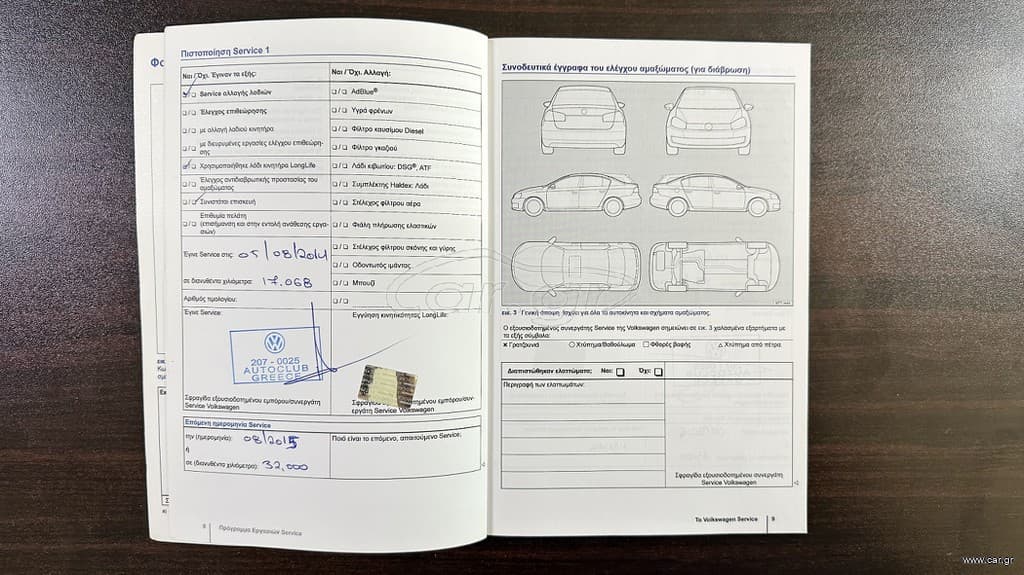 Πιστοποίηση Service 1
Ναι / Όχι. Έγιναν τα εξής:
Ναι / Όχι. Αλλαγή:
❑ / ❑ Service αλλαγής λαδιών
❑ / ❑ AdBlue®
❑ / ❑ Έλεγχος επιθεώρησης
❑ / ❑ Υγρά φρένων
❑ / ❑ με αλλαγή λαδιού κινητήρα
❑ / ❑ Φίλτρο καυσίμου Diesel
❑ / ❑ με διευρυμένες εργασίες ελέγχου επιθεώρη-
σης
❑ / ❑ Φίλτρο γκαζιού
❑ / ❑ Χρησιμοποιήθηκε λάδι κινητήρα LongLife
❑ / ❑ Λάδι κιβωτίου: DSG®, ATF
❑ / ❑ Έλεγχος αντιδιαβρωτικής προστασίας του
αμαξώματος
❑ / ❑ Συμπλέκτης Haldex: Λάδι
❑ / ❑ Συνιστάται επισκευή
❑ / ❑ Στέλεχος φίλτρου αέρα
❑ / ❑ Επιθυμία πελάτη
(επισήμανση και στην εντολή ανάθεσης εργα-
σιών)
❑ / ❑ Φιάλη πλήρωσης ελαστικών
Έγινε Service στις: 05/08/2014
❑ / ❑ Στέλεχος φίλτρου σκόνης και γύρης
❑ / ❑ Οδοντωτός ιμάντας
σε διανυθέντα χιλιόμετρα: 17.068
❑ / ❑ Μπουζί
Αριθμός τιμολογίου:
❑ / ❑
Έγινε Service:
Εγγύηση κινητικότητας LongLife:
207 - 0025
AUTOCLUB
GREECE
Σφραγίδα εξουσιοδοτημένου εμπόρου/συνεργάτη
Service Volkswagen
Σφραγίδα εξουσιοδοτημένου εμπόρου/συν-
εργάτη Service Volkswagen
Επόμενη ημερομηνία Service
την (ημερομηνία): 08/2015
Ποιό είναι το επόμενο, απαιτούμενο Service;
ή
σε (διανυθέντα χιλιόμετρα): 32,000
8 Πρόγραμμα Εργασιών Service
Συνοδευτικά έγγραφα του ελέγχου αμαξώματος (για διάβρωση)
εικ. 3 Γενική άποψη: Ισχύει για όλα τα αυτοκίνητα και σχήματα αμαξώματος.
Ο εξουσιοδοτημένος συνεργάτης Service της Volkswagen σημειώνει σε εικ. 3 χαλασμένα εξαρτήματα με
τα εξής σύμβολα:
✕ Γρατζουνιά ○ Χτύπημα/Βαθούλωμα □ Φθορές βαφής △ Χτύπημα από πέτρα
Διαπιστώθηκαν ελαττώματα; Ναι: ❑ Όχι: ❑
Περιγραφή των ελαττωμάτων:
Σφραγίδα εξουσιοδοτημένου συνεργάτη
Service Volkswagen
Το Volkswagen Service 9
car.gr
www.car.gr